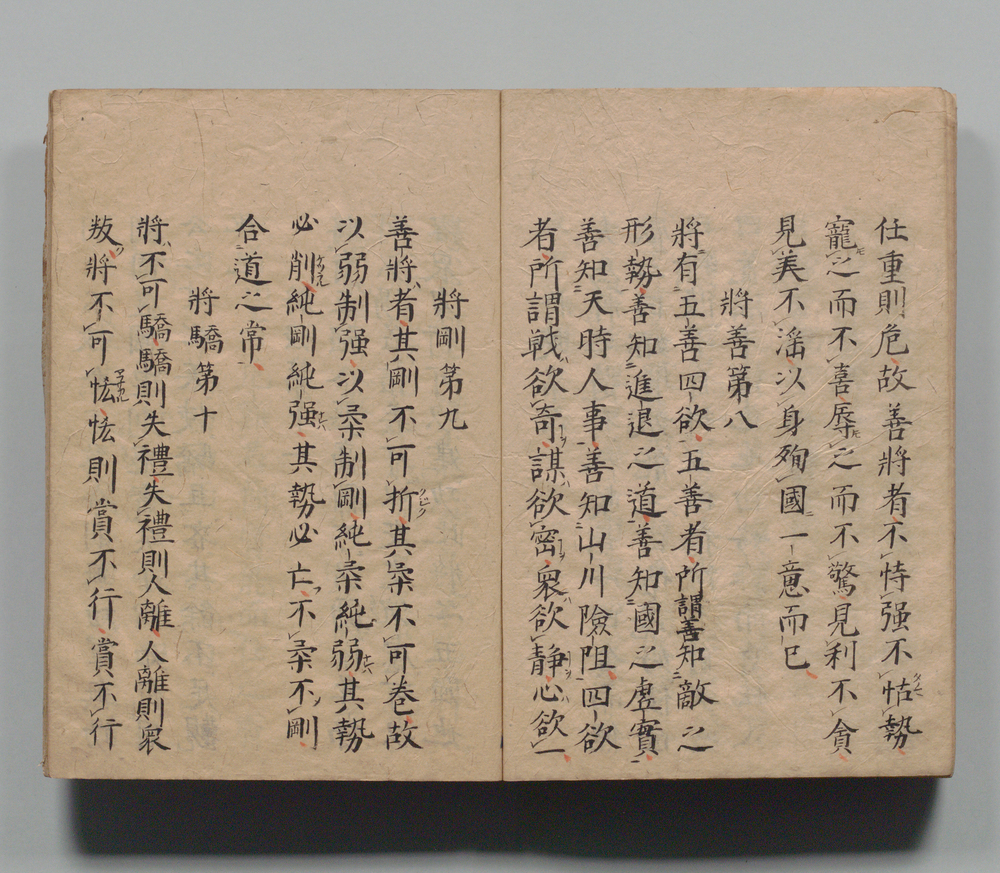 任重則危故善將者不恃强不怙勢
寵之而不喜辱之而不驚見利不貪
見美不滛以身殉國一意而已
將善第八
將有五善四欲五善者所謂善知敵之
形勢善知進退之道善知國之虛實
善知天時人事善知山川險阻四欲
者所謂戦欲奇謀欲密衆欲静心欲一
將剛第九
善將者其剛不可折其柔不可卷故
以弱制强以柔制剛純柔純弱其勢
必削純剛純强其勢必亡不柔不剛
合道之常
將驕第十
將不可驕驕則失禮失禮則人離人離則衆
叛將不可怯怯則賞不行賞不行